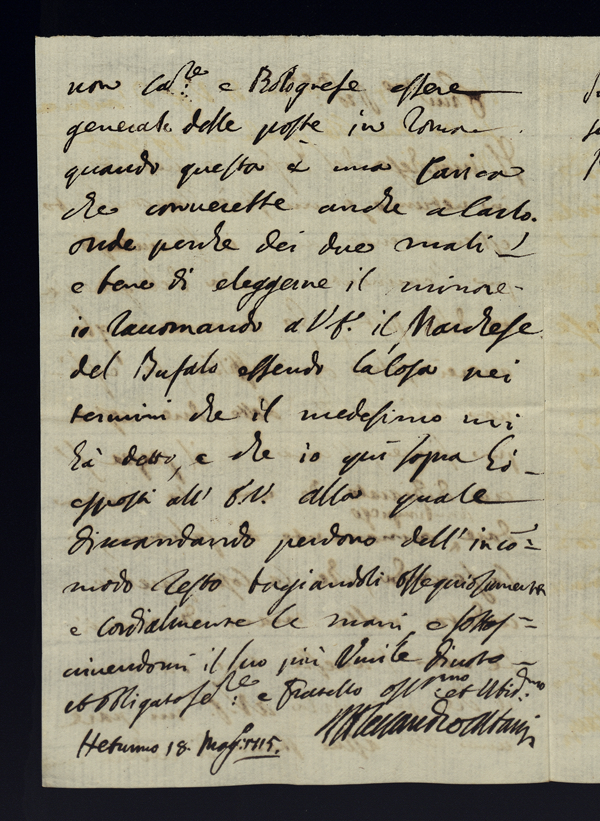 non Ca.re e Bolognese essere
generale delle poste in Roma
quando questa è una Carica
che converrebbe anche a Carlo.
onde perche dei due mali
e bene di eleggerne il minore
io raccomando a V.S. il Marchese
del Bufalo essendo la cosa nei
termini che il medesimo mi
hà detto, e che io quì sopra hò
esposti all' V.S. alla quale
dimandando perdono dell' inco=
modo resto baciandoli ossequiosamente
e cordialmente le mani, e sottos=
crivendomi il suo più Umile divoto
et obligato se.re e Fratello oss.mo et
Alessandro Albani
18. Mag.